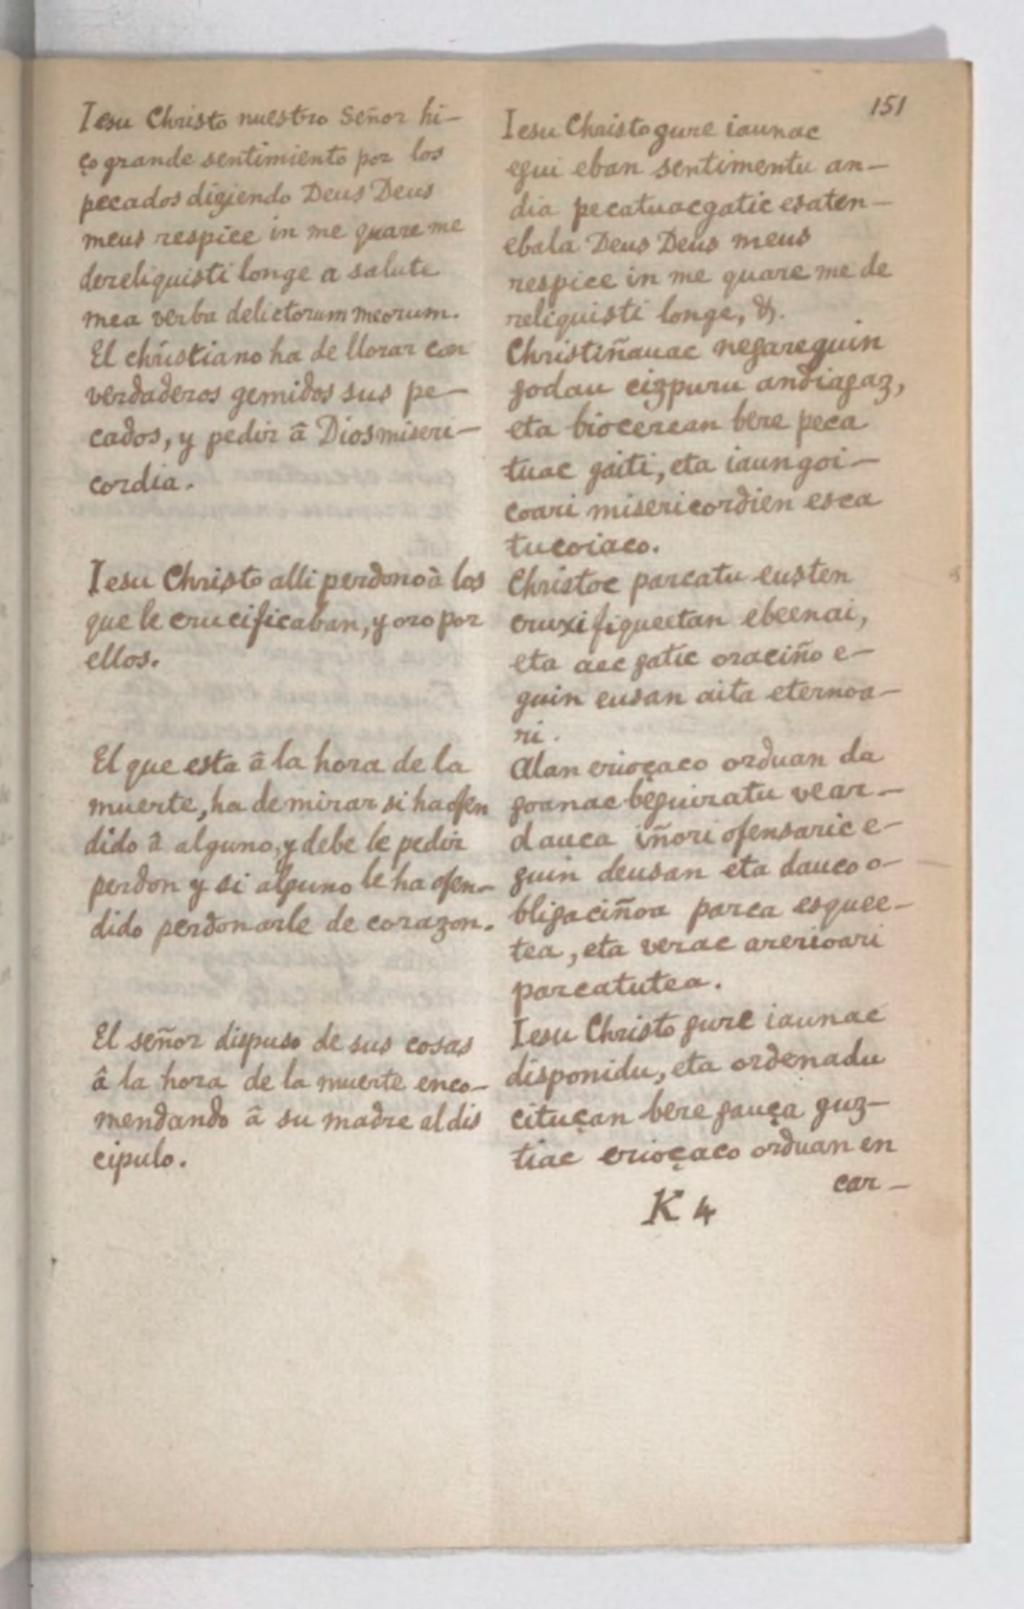 151
Iesu Christo nuestro Señor hi-
ço grande sentimiento por los
pecados digiendo Deus Deus
meus respice in me quare me
dereliquisti longe a salute
mea verba delictorum meorum.
El christiano ha de llorar con
verdaderos gemidos sus pe-
cados, y pedir â Dios miseri-
cordia.
Iesu Christo alli perdonò â los
que le crucificaban, y oro por
ellos.
El que esta â la hora de la
muerte, ha de mirar si ha ofen
dido â alguno, y debe le pedir
perdon y si alguno le ha ofen-
dido perdonarle de corazon.
El señor dispuso de sus cosas
â la hora de la muerte enco-
mendando â su madre al dis
cipulo.
Iesu Christo gure iaunac
egui eban sentimentu an-
dia pecatuacgatic esaten-
ebala Deus Deus meus
respice in me quare me de
reliquisti longe, &.
Christiñauac negareguin
godau cizpuru andiagaz,
eta biocerean bere peca
tuac gaiti, eta iaungoi-
coari misericordien esca
tucoiaco.
Christoc parcatu eusten
cruxifiqueetan ebeenai,
eta aec gatic oraciño e-
guin eusan aita eternoa-
ri.
Alan erioçaco orduan da
goanac beguiratu vear-
dauca iñori ofensaric e-
guin deusan eta dauco o-
bligaciñoa parca esquee-
tea, eta verac arerioari
parcatutea.
Iesu Christo gure iaunac
disponidu, eta ordenadu
cituçan bere gauça guz-
tiac erioçaco orduan en
car-
K 4